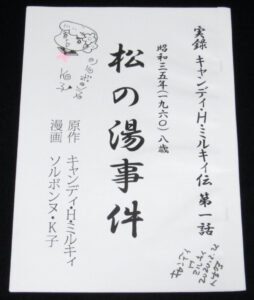 実録 キャンディ・H・ミルキィ伝 第一話
昭和三五年(一九六〇)八歳
松の湯事件
原作 キャンディ・H・ミルキィ
漫画 ソルボンヌ・K子